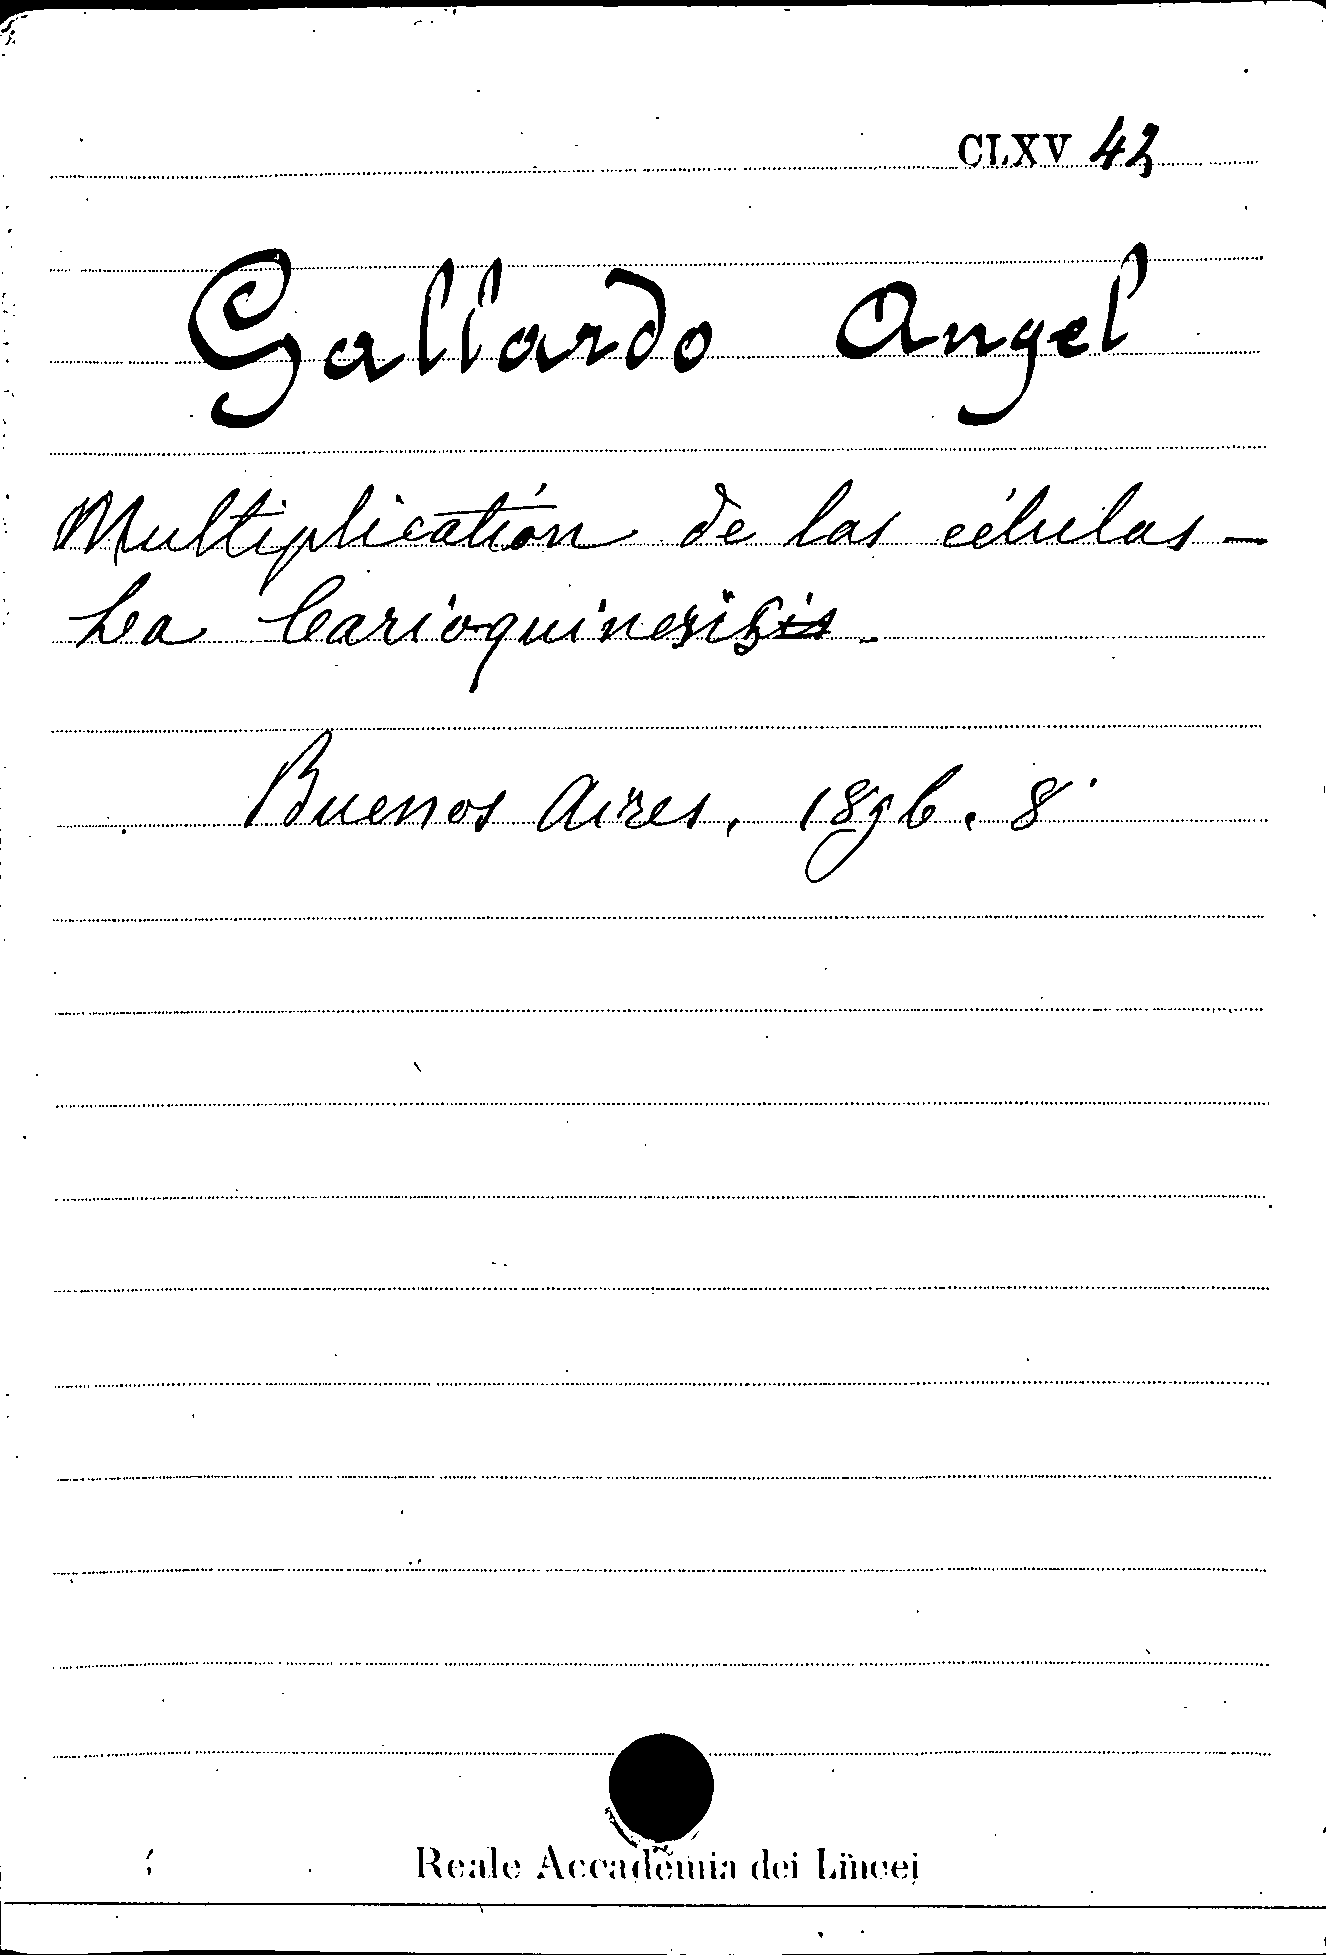 CLXV 42
Gallardo Angel
Multiplicatión de las células -
La Carioquinesis -
Buenos Aires, 1896. 8°
Reale Accademia dei Lincei